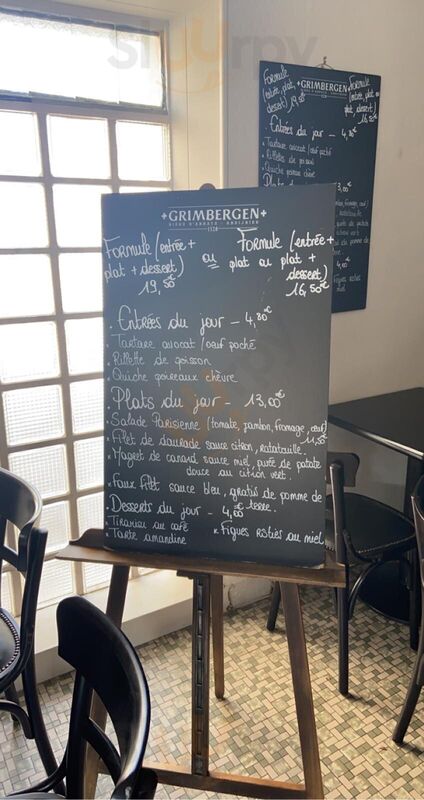 +GRIMBERGEN+
BIÈRE D'ABBAYE ABDIJBIER
1128
Formule (entrée + plat + dessert) 19,50€
ou
Formule (entrée + plat ou plat + dessert) 16,50€
. Entrées du jour - 4,80€
* Tartare avocat / oeuf poché
* Rillette de poisson
* Quiche poireaux chèvre
. Plats du jour - 13,00€
* Salade Parisienne (tomate, jambon, fromage, oeuf) 11,50€
* Filet de daurade sauce citron, ratatouille.
* Magret de canard sauce miel, purée de patate
douce au citron vert.
* Faux filet sauce bleu, gratin de pomme de
terre.
. Desserts du jour - 4,60€
* Tiramisu au café
* Tarte amandine
* Figues rôties au miel
+GRIMBERGEN+
Formule (entrée, plat, dessert) 19,50
Formule (entrée, plat ou plat dessert) 16,50€
Entrées du jour - 4,80
* Tartare avocat / oeuf poché
* Rillettes de poisson
* Quiche poireau chèvre
13,00€
jambon, fromage, oeuf)
ratatouille
de patate
pomme de
4,60
Figues rôties
miel
sluurpy